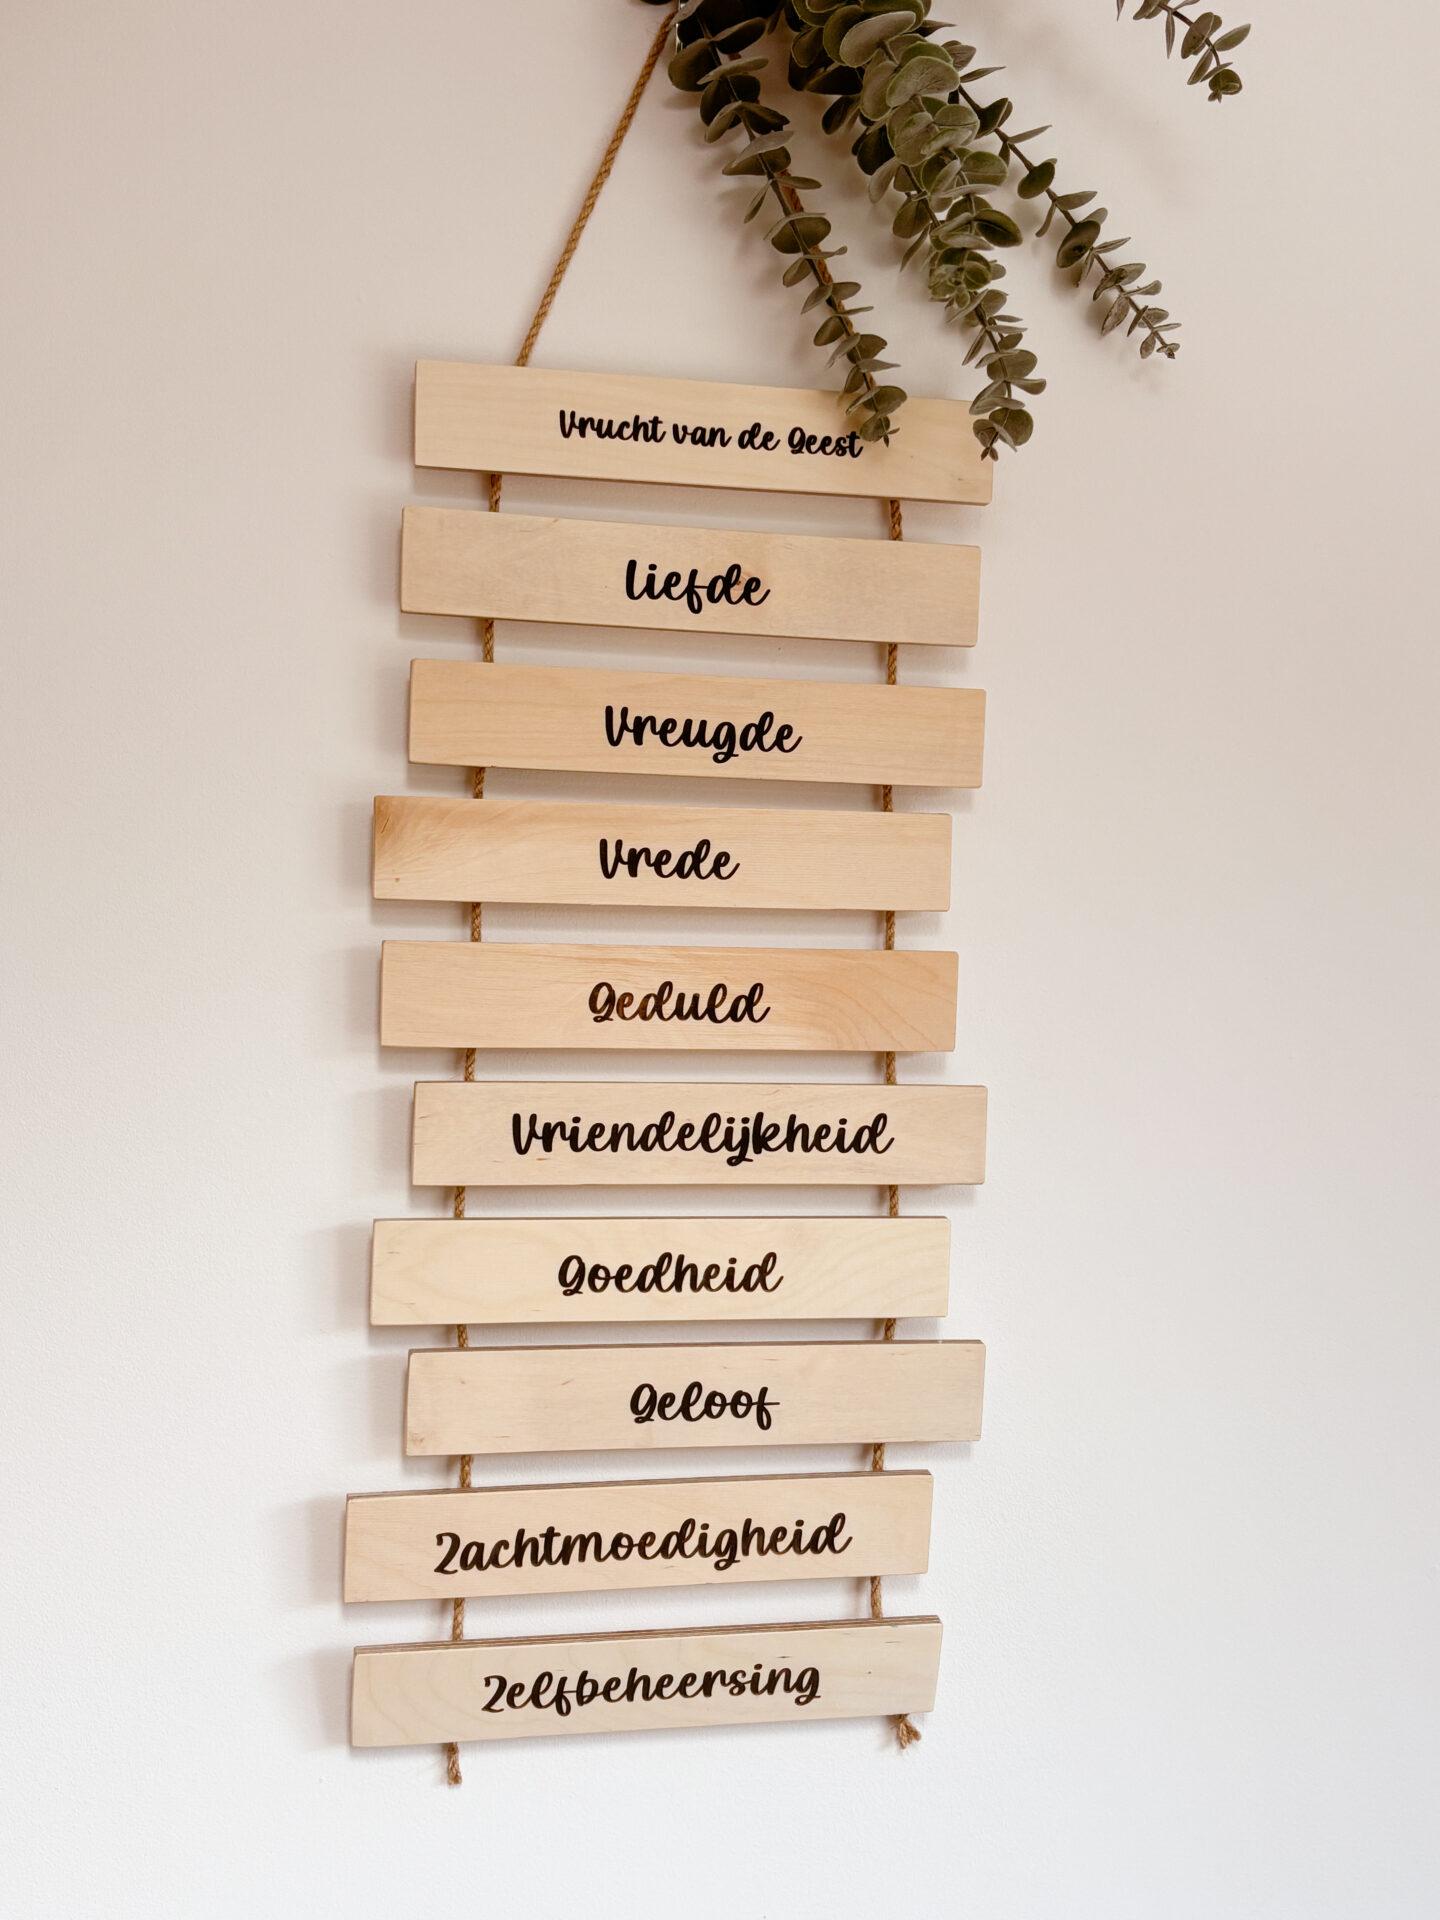 Vrucht van de Geest
Liefde
Vreugde
Vrede
Geduld
Vriendelijkheid
Goedheid
Geloof
Zachtmoedigheid
Zelfbeheersing